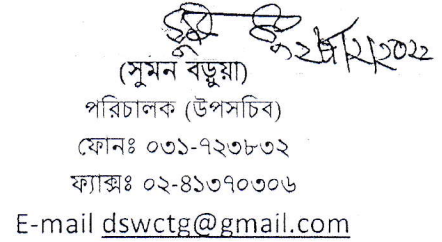 (সুমন বড়ুয়া)
পরিচালক (উপসচিব)
ফোনঃ ০৩১-৭২৩৮৩২
ফ্যাক্সঃ ০২-৪১৩৭০৩০৬
E-mail dswctg@gmail.com